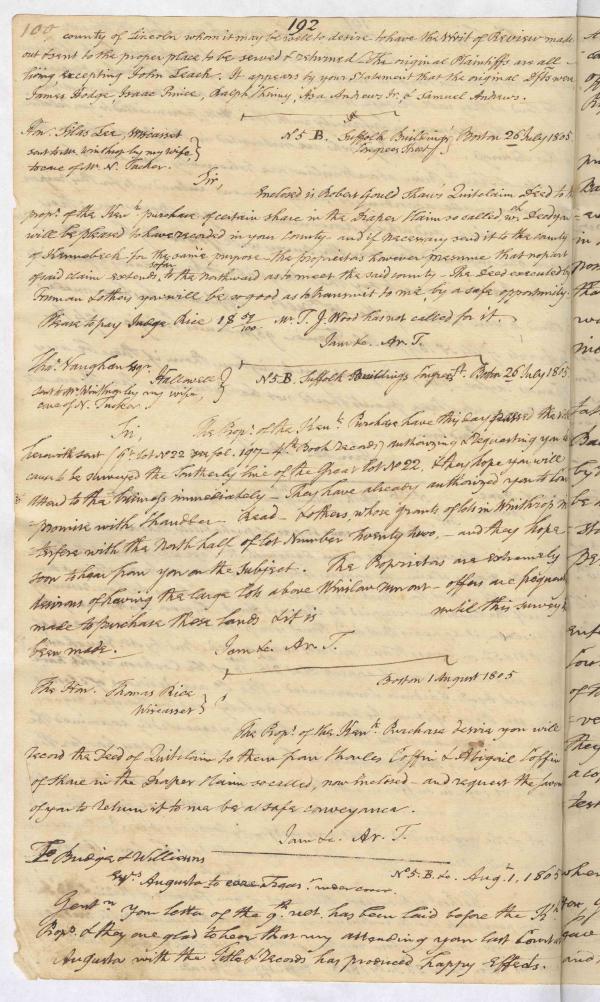 100 192
county of Lincoln whom it may be well to desire to have the Writ of Review made
out & sent to the proper place to be served & returned. The original Plaintiffs are all
living excepting John Leach. It appears by your Statement that the original Dfts were
James Hodge, Isaac Prince, Ralph Chiney, Asa Andrews Jr. & Samuel Andrews.
Hon. Silas Lee, Wiscasset
sent to Mr. Winthrop by my wife,
to care of Mr. N. Tucker.
No 5 B. Suffolk Buildings, Congress Street Boston 26 July 1805
Sir,
Enclosed is Robert Gould Shaw's Quitclaim Deed to the
Propr. of the Ken. purchase of certain share in the Draper Claim so called wh. Deed you
will be pleased to have recorded in your County and if necessary send it to the county
of Kennebeck for the same purpose. The proprietors however presume that no part
of said claim extends so far to the northward as to meet the said county - The deed executed by
Inman & others you will be so good as to transmit to me, by a safe opportunity.
Please to pay Judge Rice 18 57/100. Mr. T. J. Wood has not called for it.
I am &c. Ar. T.
Thos. Vaughan Esqr. Hallowell
sent to Mr Winthrop by my wife,
care of N. Tucker
No 5 B Suffolk Buildings Congress St. Boston 26 July 1805
Sir, The Propr. of the Ken. Purchase have this day passed the vote
herewith sent (6. lot No 22 fol. 197 - 4th Book Records) authorizing & requesting you to
cause to be surveyed the Southerly line of the Great lot No 22, & they hope you will
attend to the business immediately - They have already authorized you to Com
-promise with Chandler - Read - & others, whose grants of lots in Winthrop in
-terfere with the North half of lot Number Twenty two, - and they hope
soon to hear from you on the subject. The Proprietors are extremely
desirous of having the large lots above Winslow run out - offers are frequently
made to purchase these lands & it is until this survey has
been made. - I am &c. Ar. T.
Boston 1 August 1805
The Hon. Thomas Rice
Wiscasset
The Propr. of the Ken. Purchase desire you will
record the Deed of Quitclaim to them from Charles Coffin & Abigail Coffin
of share in the Draper Claim so called, now inclosed - and request the favor
of you to return it to me be a safe conveyance.
I am &c. Ar. T.
To Bridge & Williams
Esqrs. Augusta to
No. 5. B. &c. Augt. 1, 1805
Gentn. Your letter of the 9th ult. has been laid before the K.
Propr. & they are glad to hear that my attending your last Court at
Augusta with the Title & records has produced happy effects.